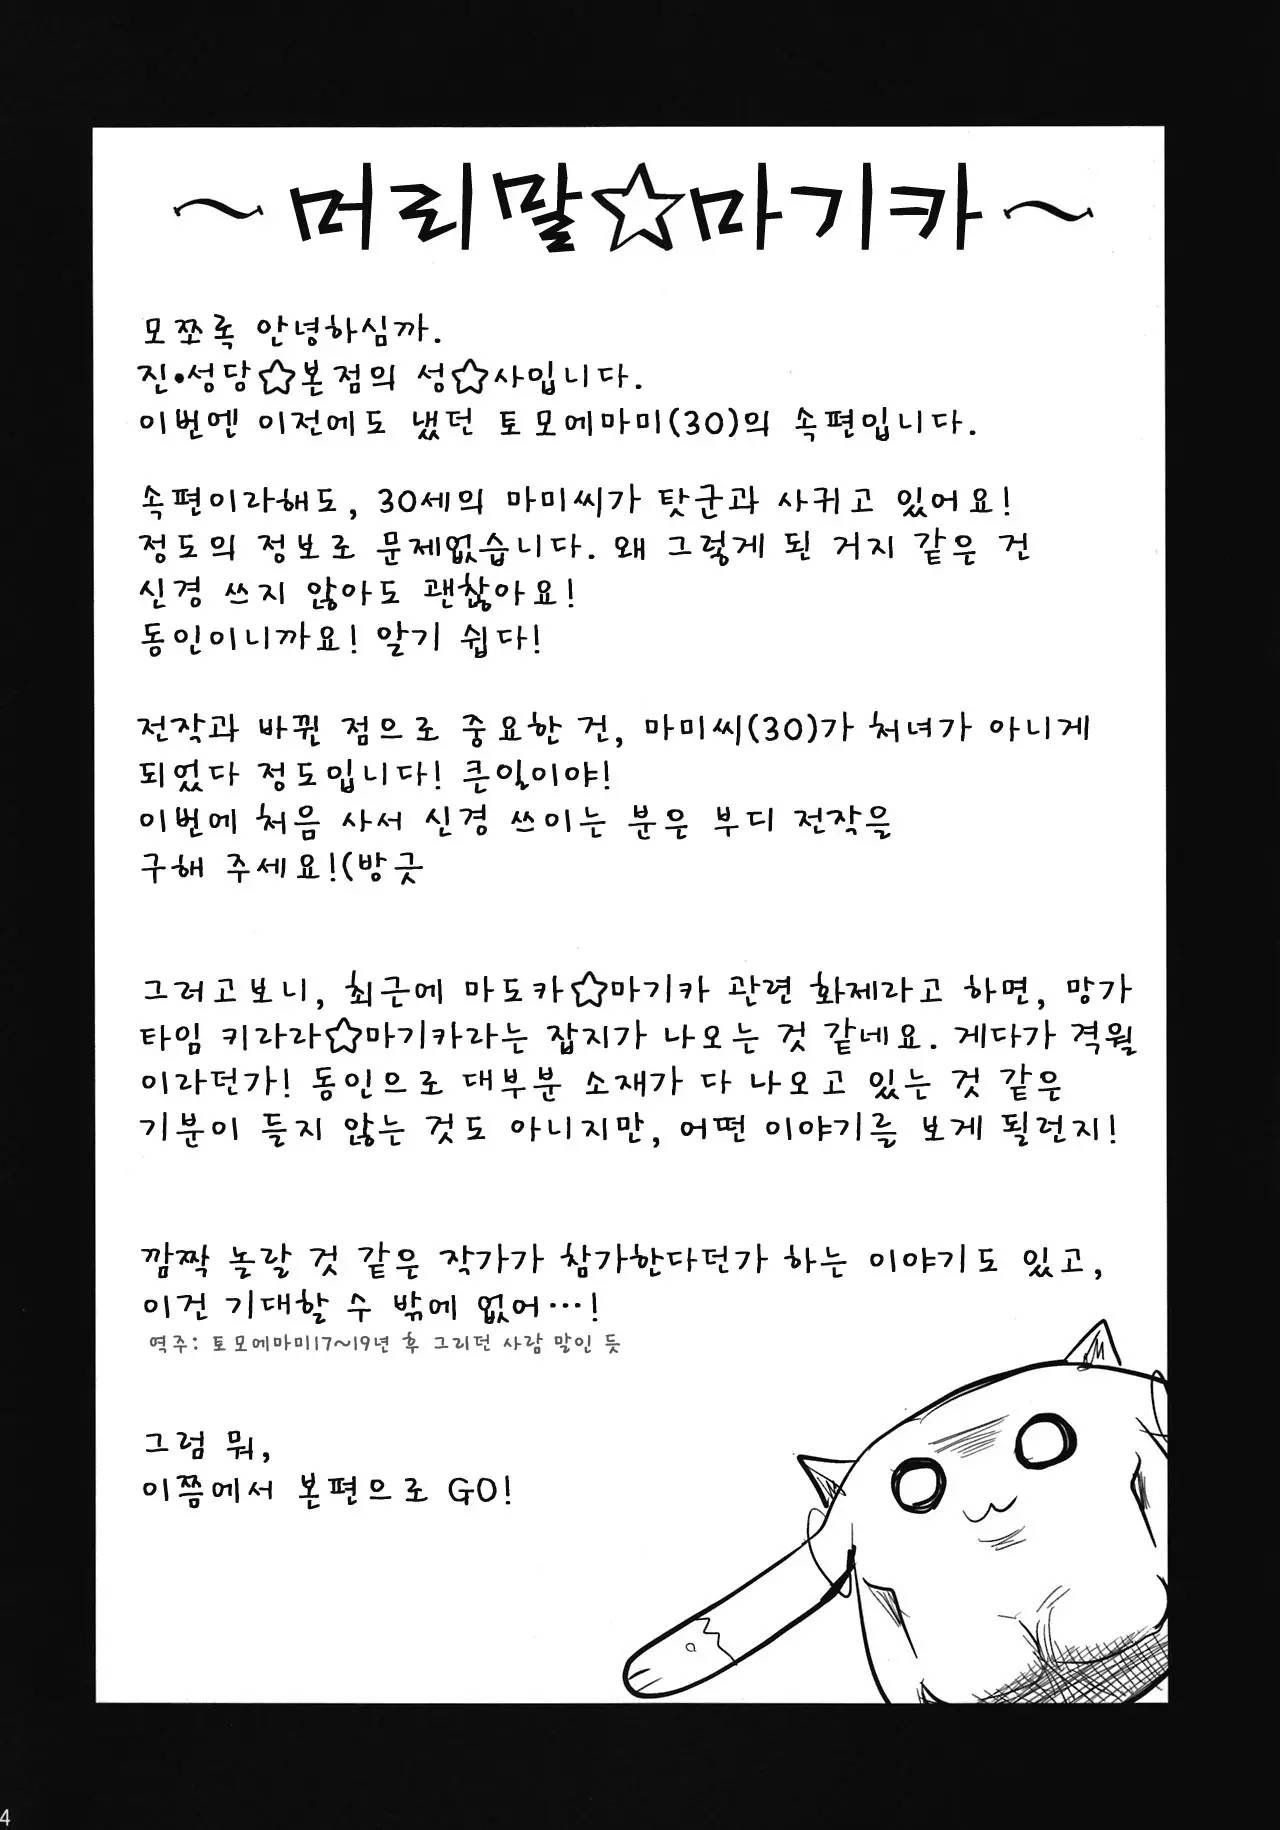 ~머리말☆마기카~
모쪼록 안녕하심까.
진•성당☆본점의 성☆사입니다.
이번엔 이전에도 냈던 토모에마미(30)의 속편입니다.
속편이라해도, 30세의 마미씨가 탓군과 사귀고 있어요!
정도의 정보로 문제없습니다. 왜 그렇게 된 거지 같은 건
신경 쓰지 않아도 괜찮아요!
동인이니까요! 알기 쉽다!
전작과 바뀐 점으로 중요한 건, 마미씨(30)가 처녀가 아니게
되었다 정도입니다! 큰일이야!
이번에 처음 사서 신경 쓰이는 분은 부디 전작을
구해 주세요!(방긋
그러고보니, 최근에 마도카☆마기카 관련 화제라고 하면, 망가
타임 키라라☆마기카라는 잡지가 나오는 것 같네요. 게다가 격월
이라던가! 동인으로 대부분 소재가 다 나오고 있는 것 같은
기분이 들지 않는 것도 아니지만, 어떤 이야기를 보게 될런지!
깜짝 놀랄 것 같은 작가가 참가한다던가 하는 이야기도 있고,
이건 기대할 수 밖에 없어…!
역주: 토모에마미17~19년 후 그리던 사람 말인 듯
그럼 뭐,
이쯤에서 본편으로 GO!
4